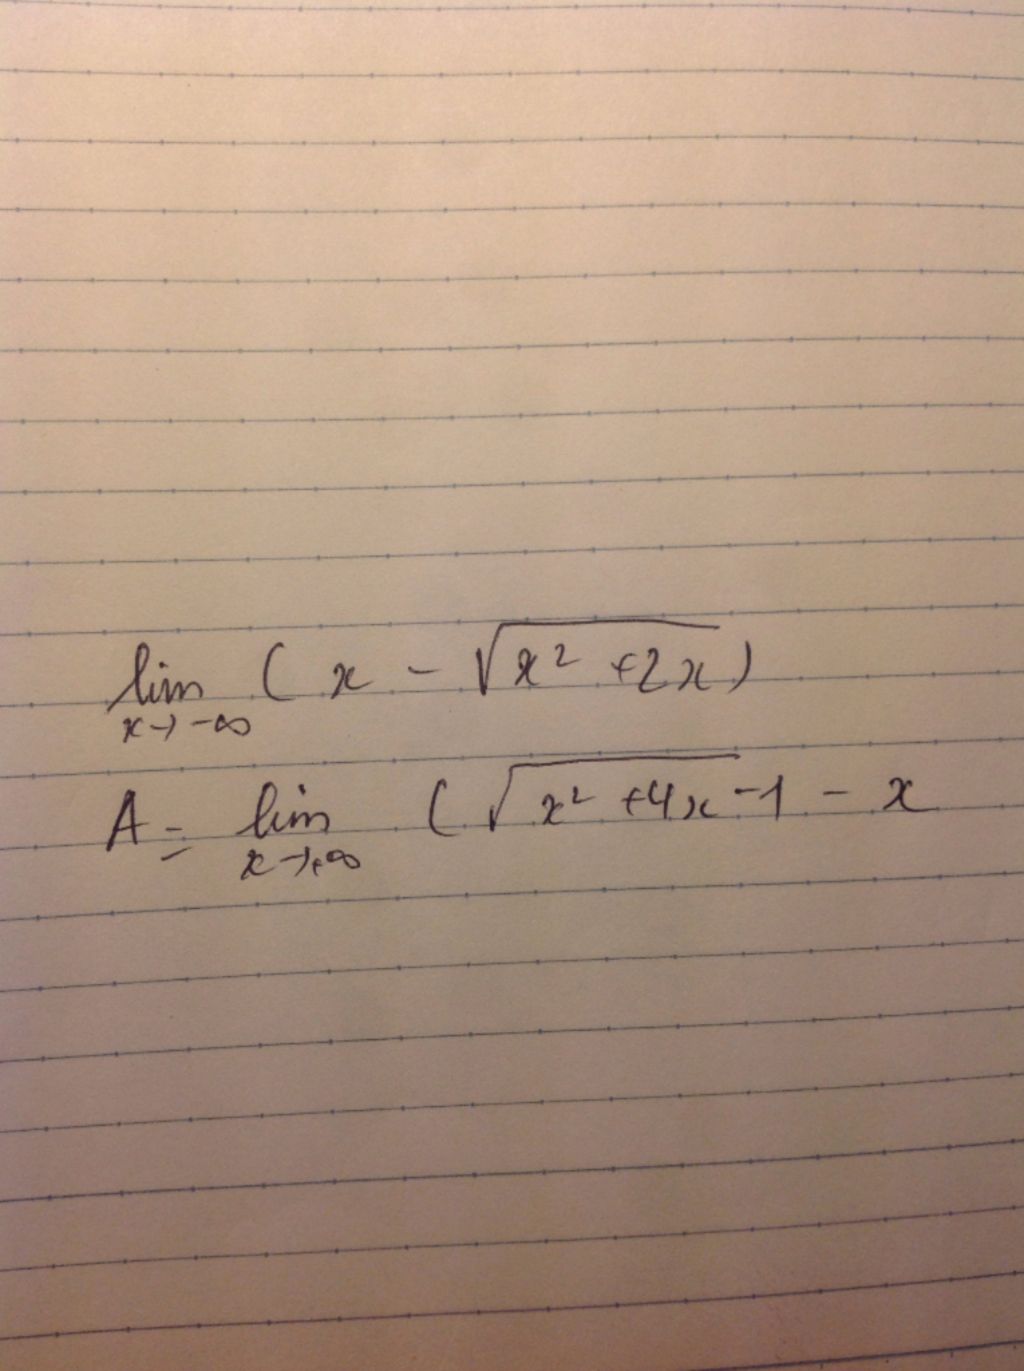 lim ( x - √x² +2x )
x→ -∞
A = lim ( √x² +4x -1 - x
x→+∞